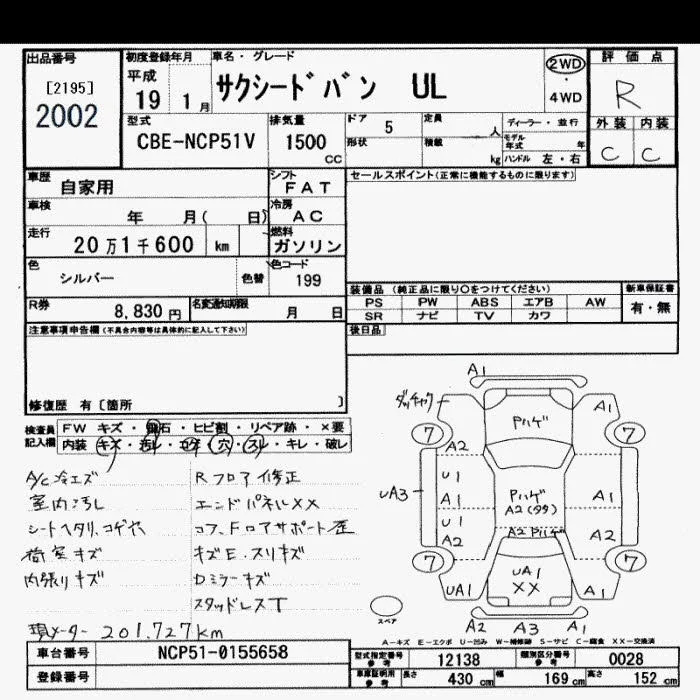 出品番号
[2195]
2002
初度登録年月
平成
19 1月
車名・グレード
サクシードバン UL
2WD
・
4WD
評価点
R
外装 内装
C C
型式
CBE-NCP51V
排気量
1500
cc
ドア 5
定員 人
形状
積載 kg
ディーラー・並行
モデル年式 年
ハンドル 左・右
車歴
自家用
シフト
FAT
車検
年 月( 日)
冷房
AC
走行
20万1千600 km
燃料
ガソリン
色
シルバー
色替
色コード
199
R券
8,830 円
名変通知期限
月 日
セールスポイント(正常に機能するものに限ります)
装備品 (純正品に限り○をつけてください)
PS PW ABS エアB AW
SR ナビ TV カワ
新車保証書
有・無
後日品
注意事項申告欄(不具合内容等は具体的に記入して下さい)
修復歴 有〔箇所 〕
検査員記入欄
FW キズ・飛石・ヒビ割・リペア跡・×要
内装 キズ・汚レ・コゲ・穴・スレ・キレ・破レ
A/C冷エズ
室内汚レ
シートヘタリ、コゲ穴
荷室キズ
内張りキズ
Rフロア修正
エンドパネルXX
コア、Fロアサポート歪
キズE・スリキズ
Dミラーキズ
スタッドレスT
現メーター 201,727km
A1
ダッチャク
Pハゲ
A1
7
7
A2
U1
A1
U1
A2
UA3
Pハゲ
A2(99)
A1
A2 Pハゲ
A2
7
7
UA1
UA1
XX
A1
スペア
A2 A3 A1
A-キズ E-エクボ U-凹み W-補修跡 S-サビ C-腐食 XX-交換済
車台番号
NCP51-0155658
登録番号
型式指定番号
参考
12138
類別区分番号
参考
0028
車庫証明用
参考
長さ 430 cm
幅 169 cm
高さ 152 cm